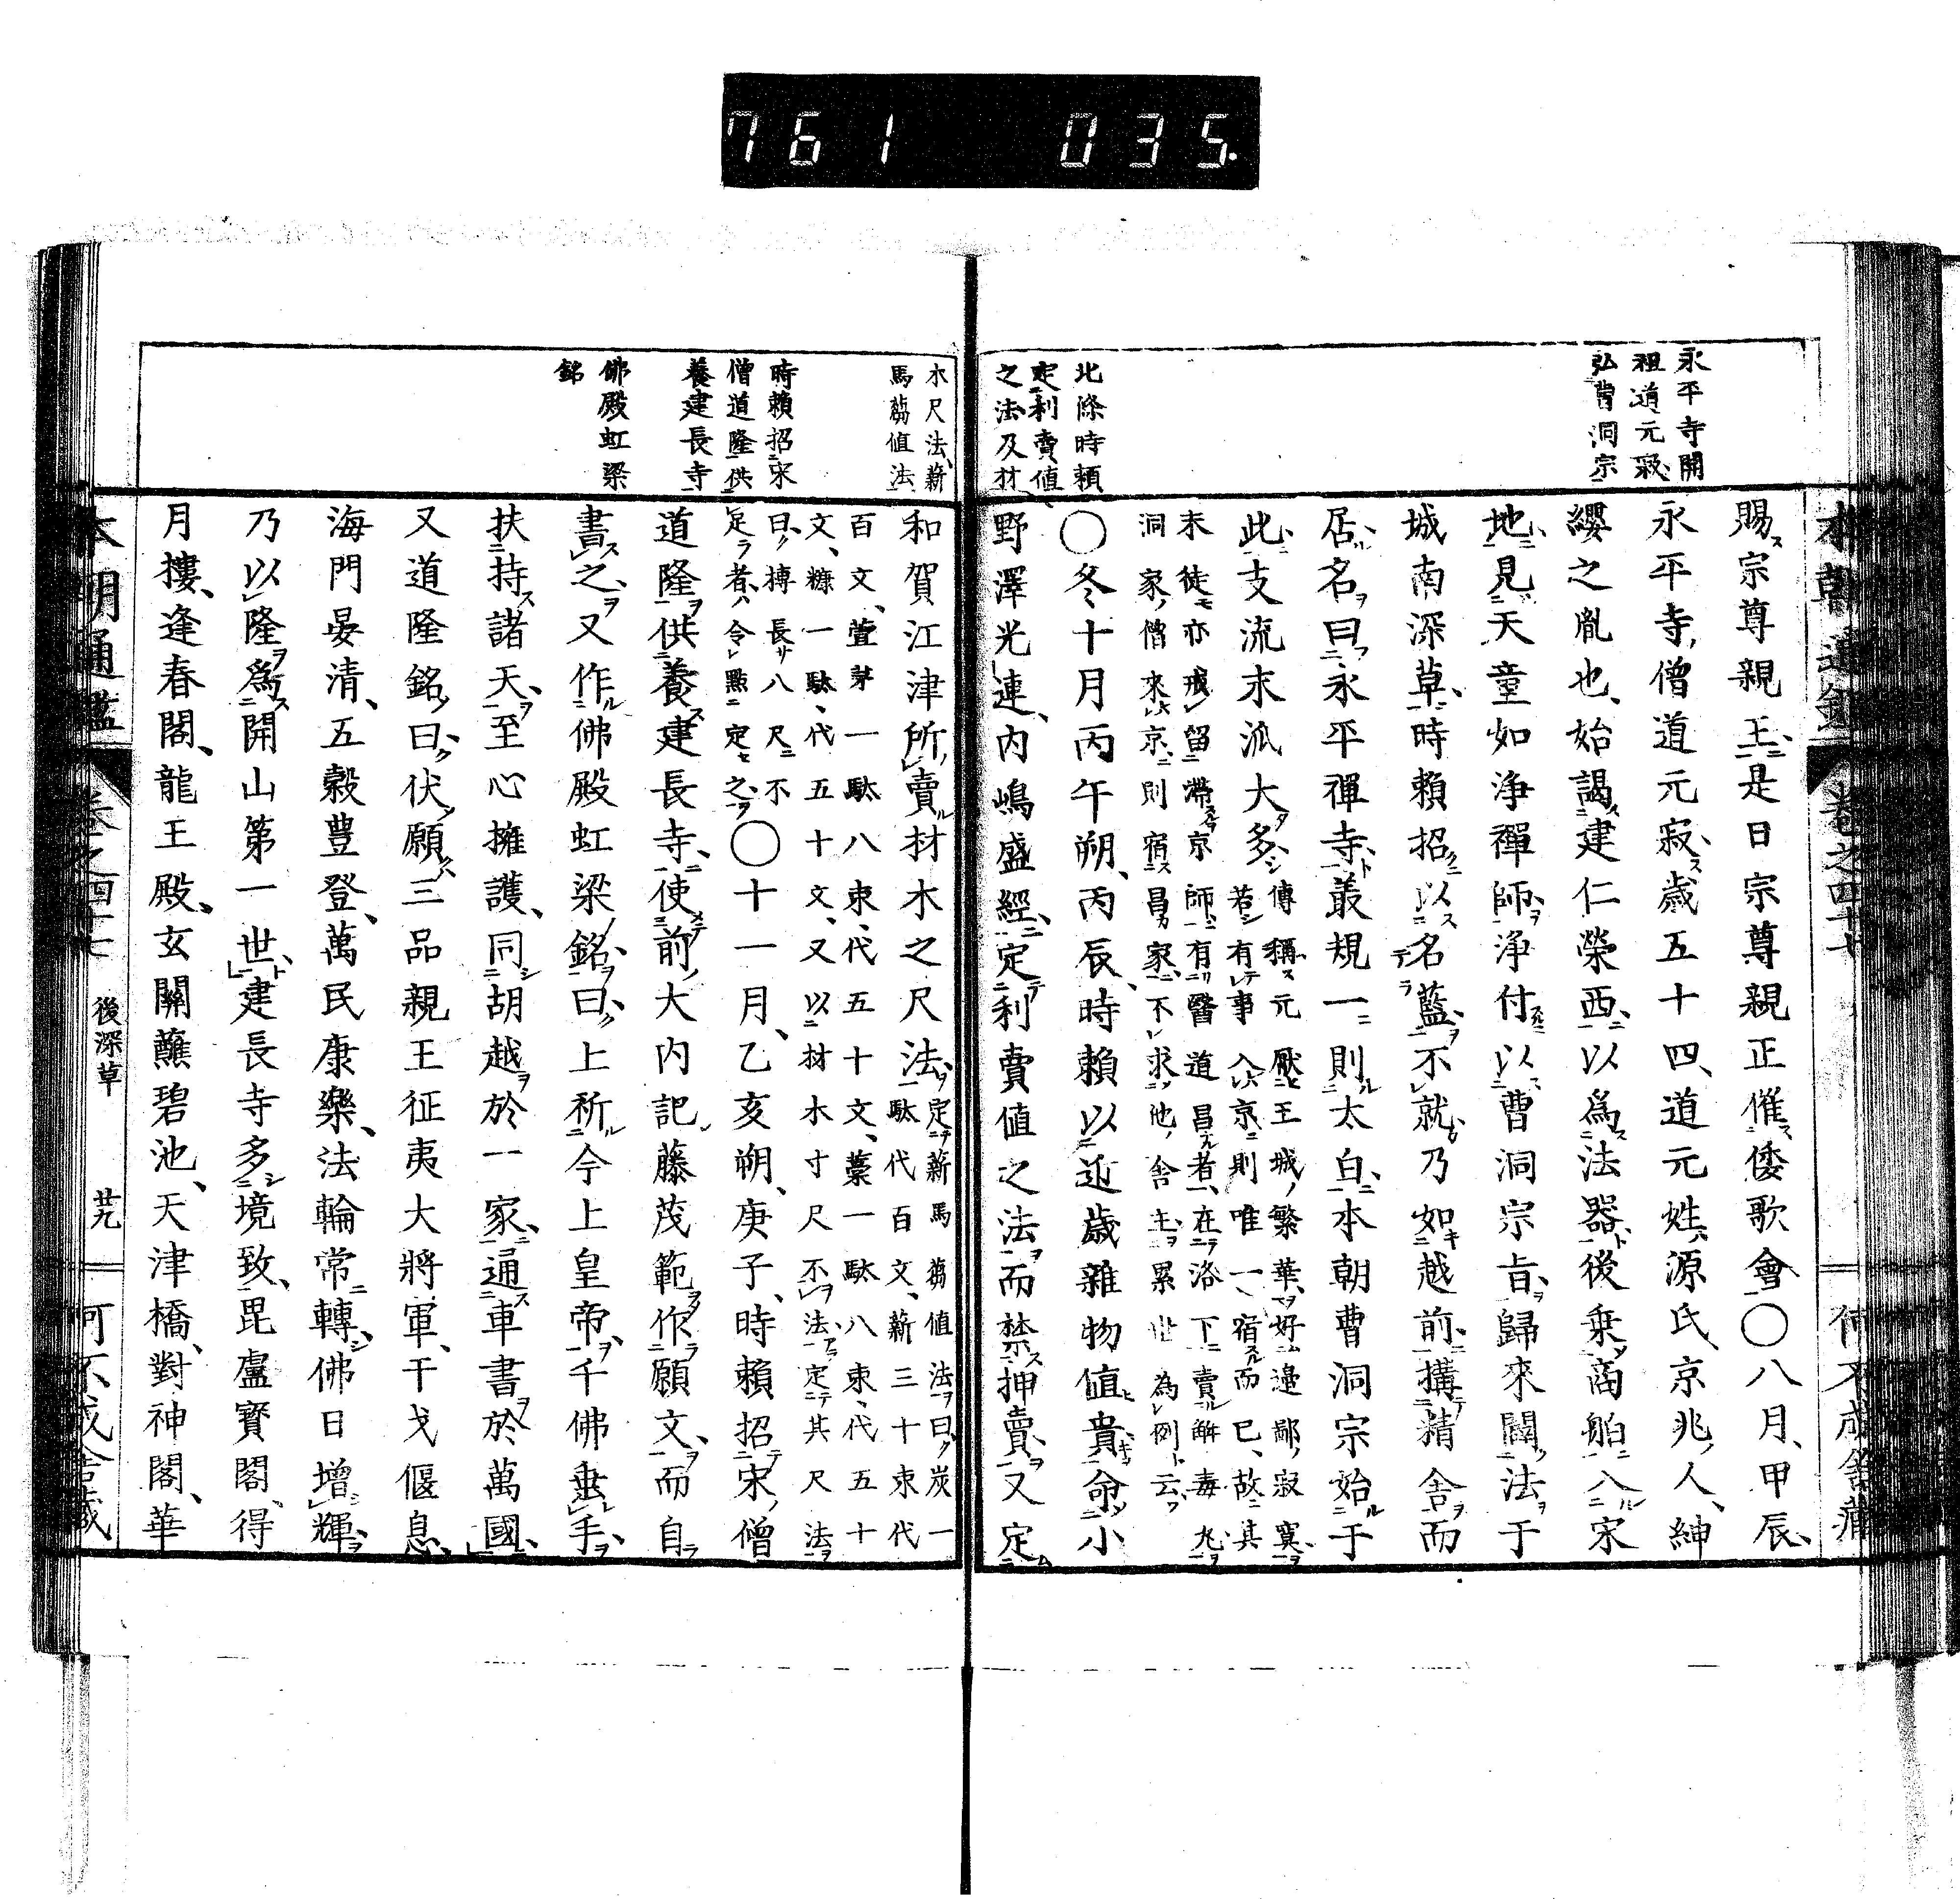 761 035.
永平寺開
祖道元寂
弘曹洞宗
北條時頼
定利賣値
之法及材
賜宗尊親王是日宗尊親正催倭歌會〇八月甲辰
永平寺僧道元寂歳五十四道元姓源氏京兆人紳
纓之胤也始謁建仁榮西以為法器後乗商舶入宋
地見天童如浄禪師浄付以曹洞宗旨歸來闡法于
城南深草時頼招以名藍不就乃如越前搆精舎而
居名曰永平禪寺叢規一則太白本朝曹洞宗始于
此支流末派大多傳稱元厭王城繁華好邉鄙寂寞
若有事入京則唯一宿而已故其
末徒亦戒留滯京師有醫道昌者在洛下賣解毒丸
洞家僧來京則宿昌家不求他舎主累世為例云
〇冬十月丙午朔丙辰時頼以近歳雑物値貴命小
野澤光連内嶋盛經定利賣値之法而禁押賣又定
木尺法薪
馬蒭値法
時頼招宋
僧道隆供
養建長寺
佛殿虹梁
銘
和賀江津所賣材木之尺法定薪馬蒭値法曰炭一
駄代百文薪三十束代
百文萱茅一駄八束代五十文藁一駄八束代五十
文糠一駄代五十文又以材木寸尺不法定其尺法
曰榑長八尺不
定者令點定之〇十一月乙亥朔庚子時頼招宋僧
道隆供養建長寺使前大内記藤茂範作願文而自
書之又作佛殿虹梁銘曰上祈今上皇帝千佛垂手
扶持諸天至心擁護同胡越於一家通車書於萬國
又道隆銘曰伏願三品親王征夷大將軍干戈偃息
海門晏清五穀豊登萬民康樂法輪常轉佛日增輝
乃以隆為開山第一世建長寺多境致毘盧寳閣得
月摟逢春閣龍王殿玄關蘸碧池天津橋對神閣華
本朝通鑑 卷之四十七 後深草 廿九